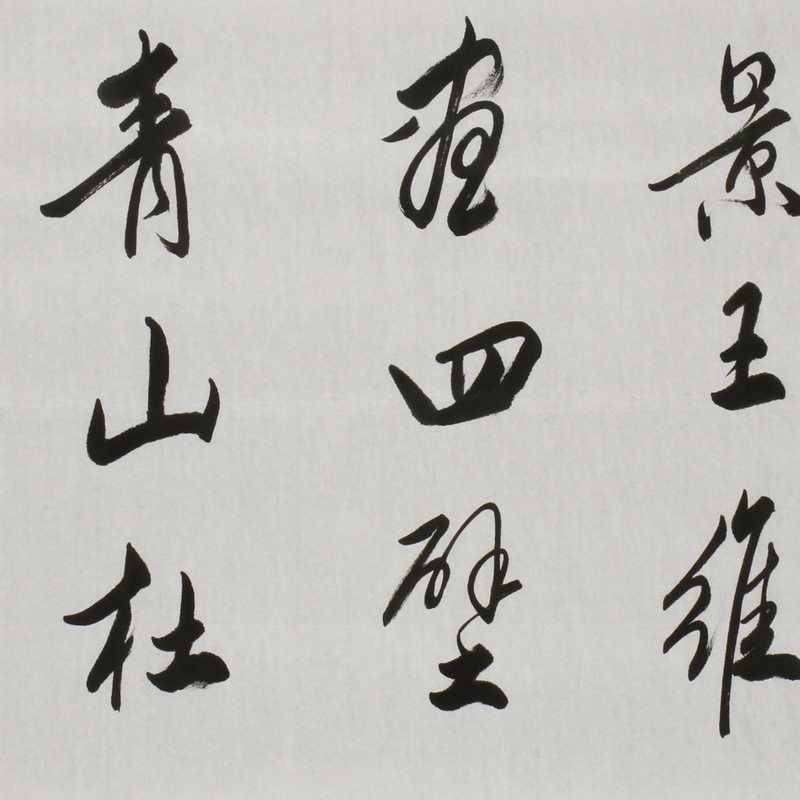 景王維
畫四壁
青山杜